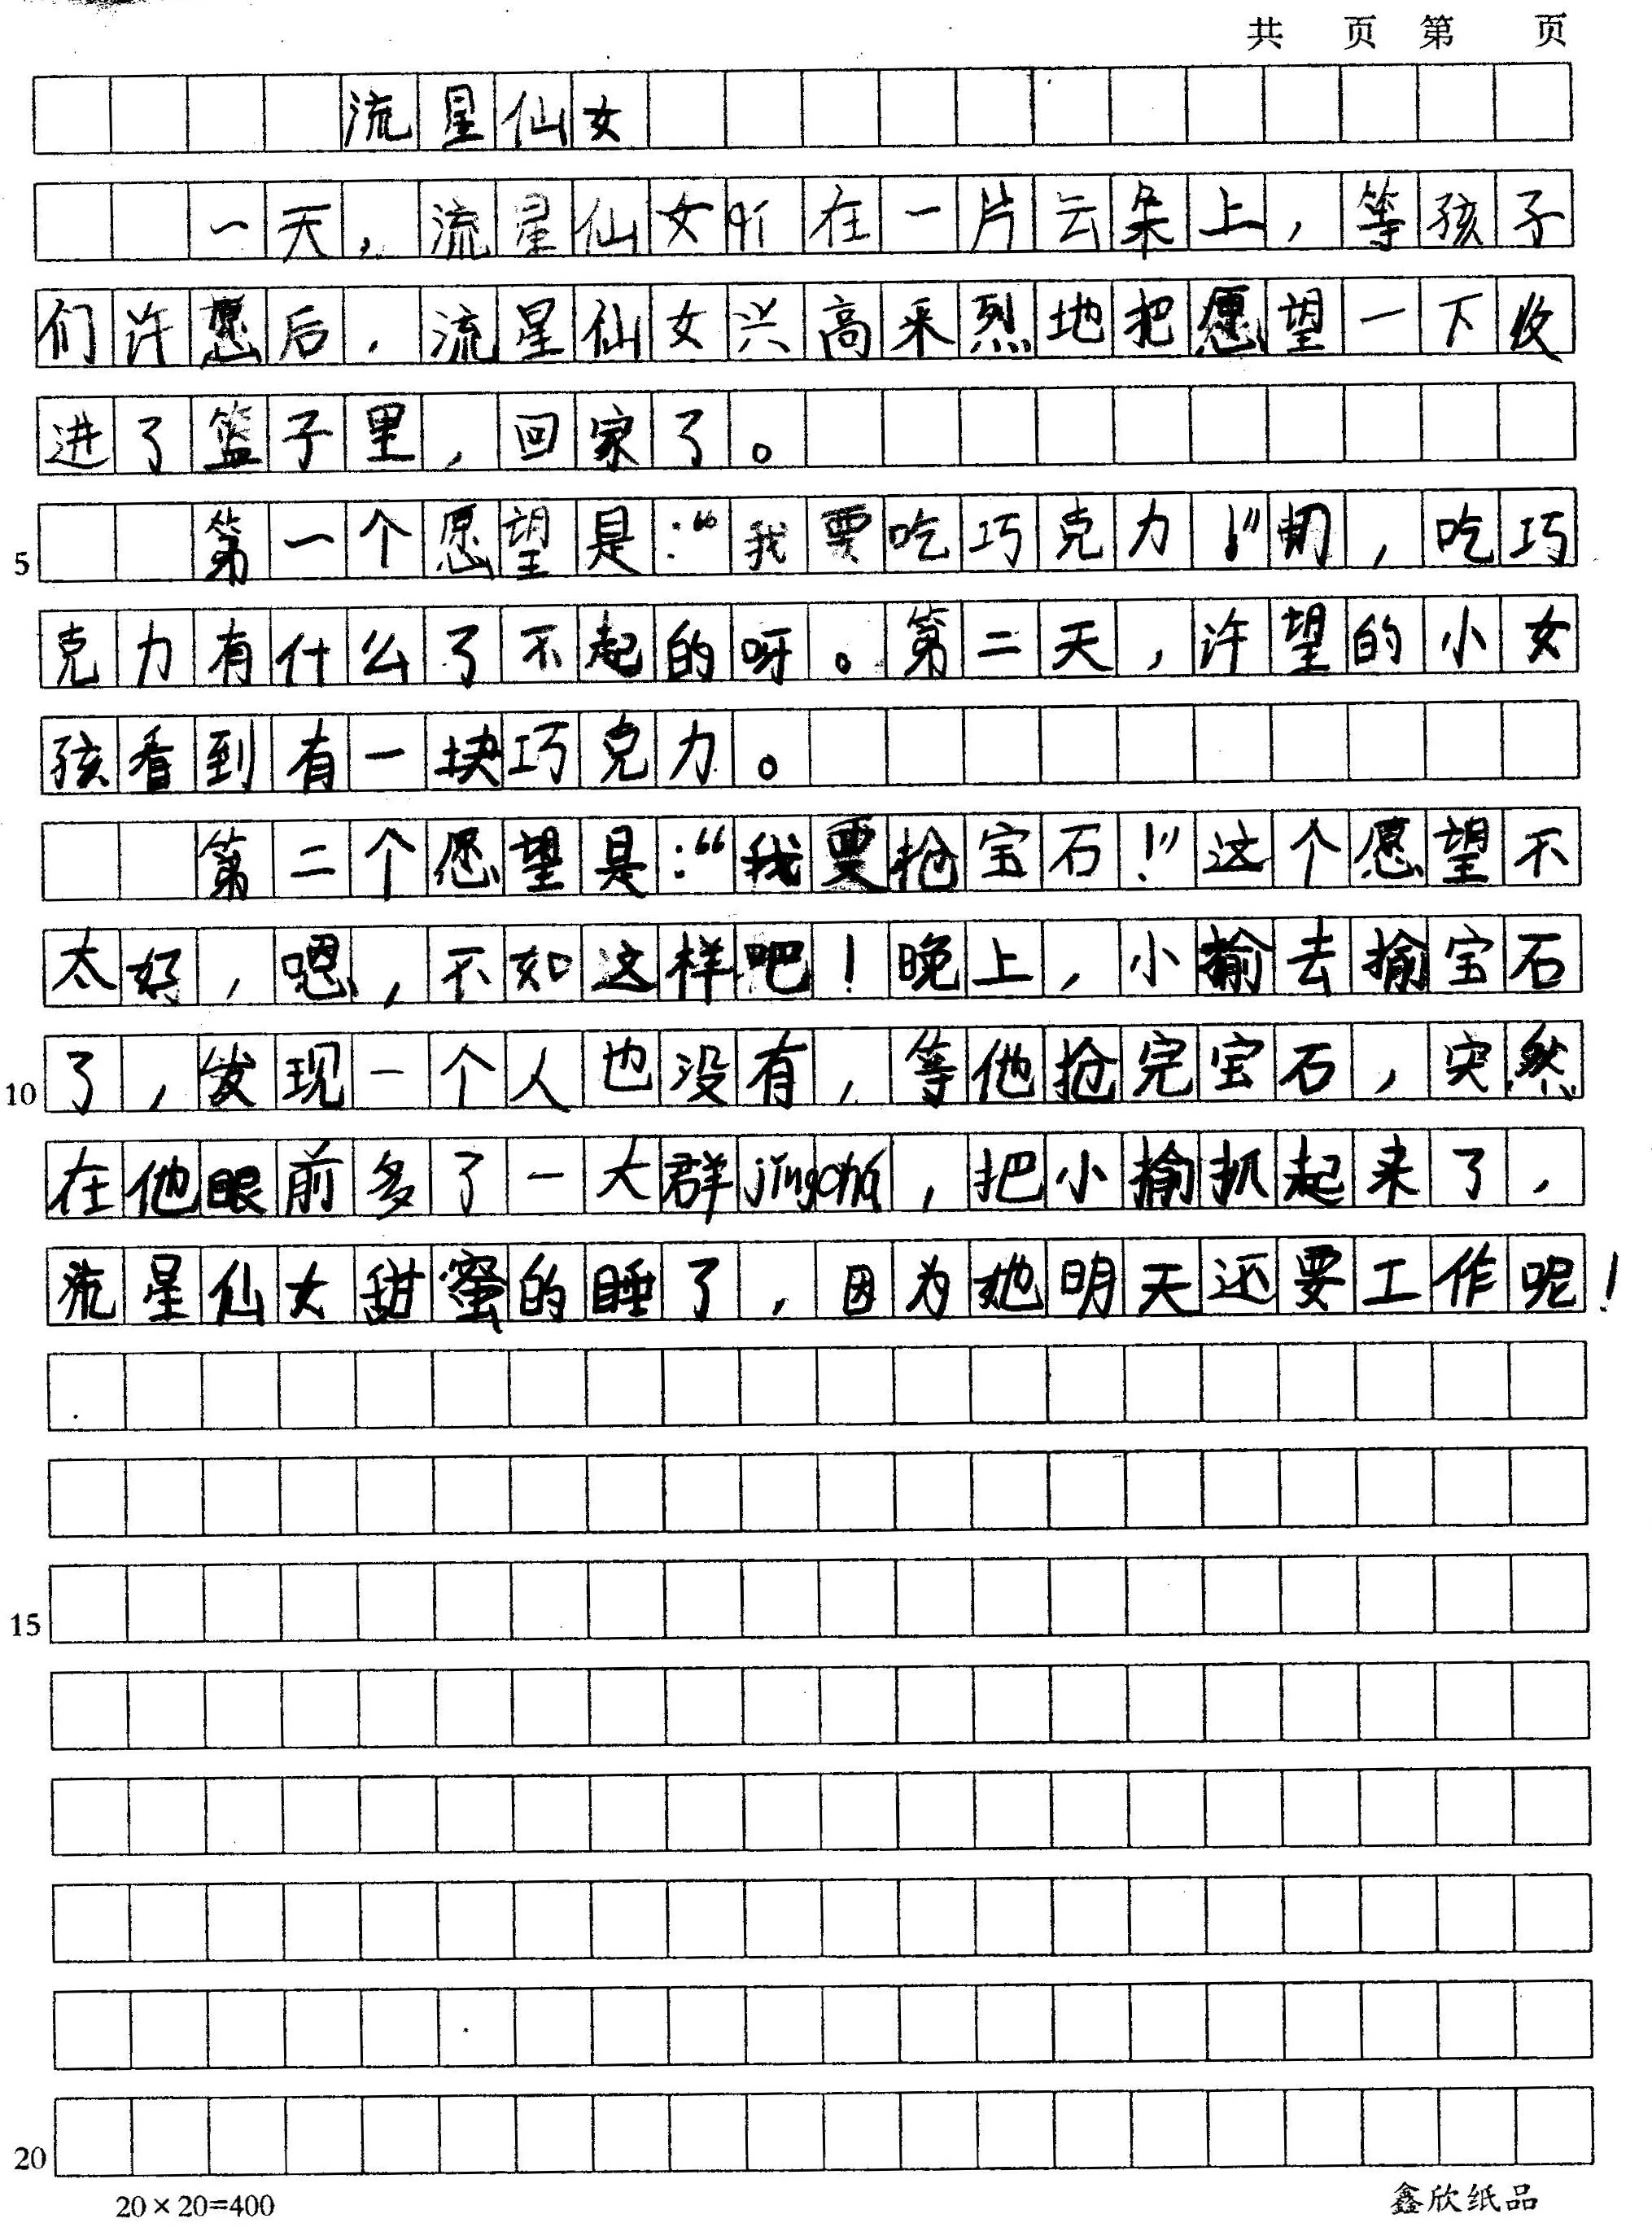 共 页 第 页
流星仙女
一天，流星仙女qi在一片云朵上，等孩子
们许愿后，流星仙女兴高采烈地把愿望一下收
进了篮子里，回家了。
第一个愿望是：“我要吃巧克力！”切，吃巧
5
克力有什么了不起的呀。第二天，许望的小女
孩看到有一块巧克力。
第二个愿望是：“我要抢宝石！”这个愿望不
太好，嗯，不如这样吧！晚上，小揄去揄宝石
了，发现一个人也没有，等他抢完宝石，突然
10
在他眼前多了一大群jǐngchá，把小揄抓起来了，
流星仙女甜蜜的睡了，因为她明天还要工作呢！
15
20
20×20=400
鑫欣纸品